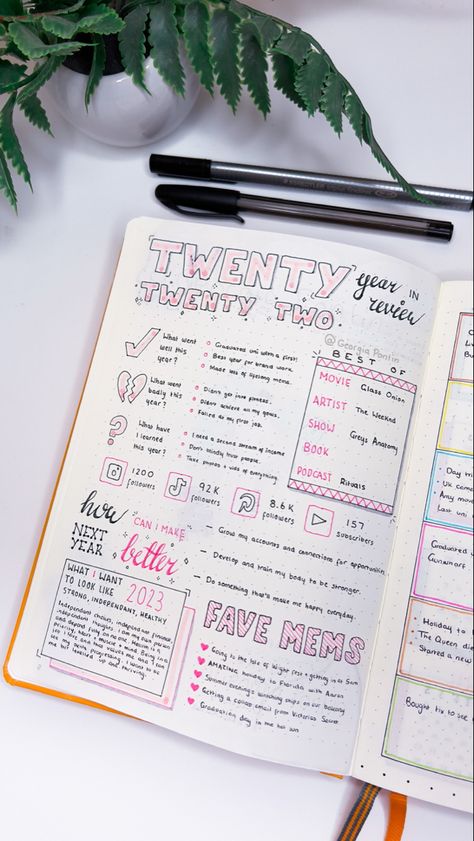 TWENTY
TWENTY TWO
year IN
review
@Georgia Pontin
What went
well this
year?
Graduated uni with a first!
Best year for brand work.
Made lots of lifelong mems.
What went
badly this
year?
Didn't get into fitness.
Didn't achieve all my goals.
Failed at my first job.
What have
I learned
this year?
I need a second stream of income
Don't blindly trust people.
Take photos & vids of everything.
BEST OF
MOVIE Glass Onion
ARTIST The Weeknd
SHOW Greys Anatomy
BOOK
PODCAST Rituals
1200
followers
92K
followers
8.6K
followers
157
subscribers
how
NEXT
YEAR
CAN I MAKE
better
— Grow my accounts and connections for opportunities
— Develop and train my body to be stronger.
— Do something that'll make me happy everyday.
WHAT I WANT
TO LOOK LIKE 2023
STRONG, INDEPENDANT, HEALTHY
Independant choices, independant finance,
independant thoughts. I am my own person
FAVE MEMS
Going to the Isle of Wight fest + getting in at 5am
AMAZING holiday to Florida with Aaron
Summer evenings watching ships on our balcony
Getting a collab email from Victorias Secret
Graduation day in the hot sun
Day
Uk
Any mo
Last
Graduated
Holiday to
The Queen die
Started a new
Bought tix to see